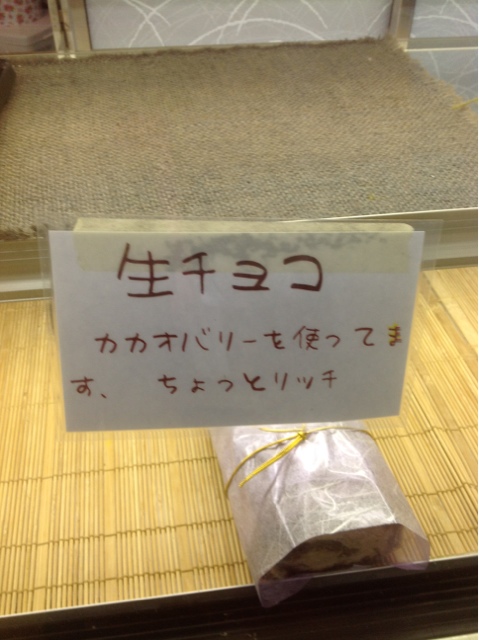 生チョコ
カカオバリーを使ってま
す、 ちょっとリッチ